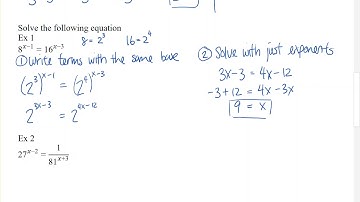 Solve the following equation
Ex 1
8 = 2³ 16 = 2⁴
8ˣ⁻¹ = 16ˣ⁻³
① Write terms with the same base
(2³)ˣ⁻¹ = (2⁴)ˣ⁻³
2³ˣ⁻³ = 2⁴ˣ⁻¹²
② Solve with just exponents
3x-3 = 4x-12
-3+12 = 4x-3x
9 = x
Ex 2
27ˣ⁻² = 1/81ˣ⁺³